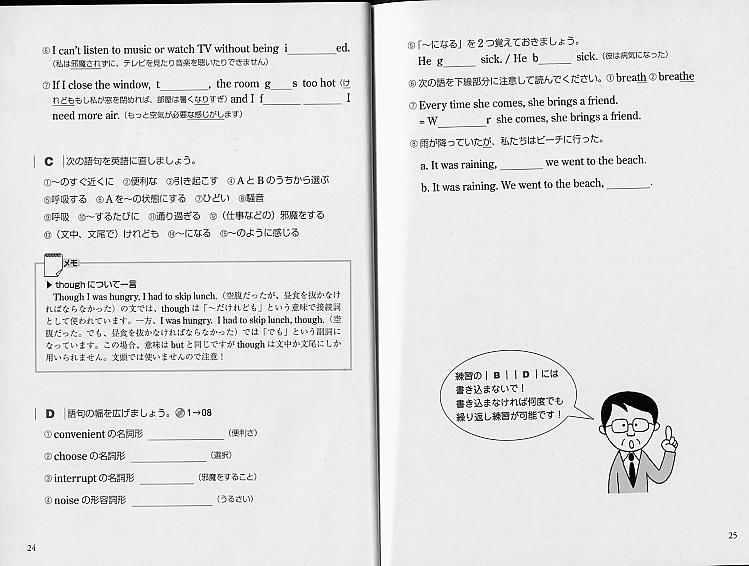 ⑥ I can't listen to music or watch TV without being i________ed.
(私は邪魔されずに、テレビを見たり音楽を聴いたりできません)
⑦ If I close the window, t________, the room g____s too hot (け
れどももし私が窓を閉めれば、部屋は暑くなりすぎ) and I f______ ______ I
need more air. (もっと空気が必要な感じがします)
C 次の語句を英語に直しましょう。
①〜のすぐ近くに ②便利な ③引き起こす ④AとBのうちから選ぶ
⑤呼吸する ⑥Aを〜の状態にする ⑦ひどい ⑧騒音
⑨呼吸 ⑩〜するたびに ⑪通り過ぎる ⑫(仕事などの)邪魔をする
⑬(文中、文尾で)けれども ⑭〜になる ⑮〜のように感じる
メモ
▶ thoughについて一言
Though I was hungry, I had to skip lunch.(空腹だったが、昼食を抜かなけ
ればならなかった)の文では、thoughは「〜だけれども」という意味で接続詞
として使われています。一方、I was hungry. I had to skip lunch, though.(空
腹だった。でも、昼食を抜かなければならなかった)では「でも」という副詞に
なっています。この場合、意味はbutと同じですがthoughは文中か文尾にしか
用いられません。文頭では使いませんので注意!
D 語句の幅を広げましょう。1→08
① convenientの名詞形 ____________ (便利さ)
② chooseの名詞形 ____________ (選択)
③ interruptの名詞形 ____________ (邪魔をすること)
④ noiseの形容詞形 ____________ (うるさい)
24
⑤「〜になる」を2つ覚えておきましょう。
He g______ sick. / He b______ sick. (彼は病気になった)
⑥ 次の語を下線部分に注意して読んでください。① breath ② breathe
⑦ Every time she comes, she brings a friend.
= W________r she comes, she brings a friend.
⑧ 雨が降っていたが、私たちはビーチに行った。
a. It was raining, ________ we went to the beach.
b. It was raining. We went to the beach, ________.
練習の|B||D|には
書き込まないで!
書き込まなければ何度でも
繰り返し練習が可能です!
25